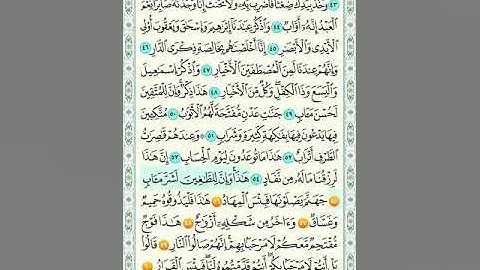 ٤٣ وَخُذْ بِيَدِكَ ضِغْثًا فَٱضْرِب بِّهِۦ وَلَا تَحْنَثْ إِنَّا وَجَدْنَٰهُ صَابِرًا نِّعْمَ
ٱلْعَبْدُ إِنَّهُۥٓ أَوَّابٌ ٤٤ وَٱذْكُرْ عِبَٰدَنَآ إِبْرَٰهِيمَ وَإِسْحَٰقَ وَيَعْقُوبَ أُو۟لِى
ٱلْأَيْدِى وَٱلْأَبْصَٰرِ ٤٥ إِنَّآ أَخْلَصْنَٰهُم بِخَالِصَةٍ ذِكْرَى ٱلدَّارِ ٤٦
وَإِنَّهُمْ عِندَنَا لَمِنَ ٱلْمُصْطَفَيْنَ ٱلْأَخْيَارِ ٤٧ وَٱذْكُرْ إِسْمَٰعِيلَ
وَٱلْيَسَعَ وَذَا ٱلْكِفْلِ وَكُلٌّ مِّنَ ٱلْأَخْيَارِ ٤٨ هَٰذَا ذِكْرٌ وَإِنَّ لِلْمُتَّقِينَ
لَحُسْنَ مَـَٔابٍ ٤٩ جَنَّٰتِ عَدْنٍ مُّفَتَّحَةً لَّهُمُ ٱلْأَبْوَٰبُ ٥٠ مُتَّكِـِٔينَ
فِيهَا يَدْعُونَ فِيهَا بِفَٰكِهَةٍ كَثِيرَةٍ وَشَرَابٍ ٥١ ۞ وَعِندَهُمْ قَٰصِرَٰتُ
ٱلطَّرْفِ أَتْرَابٌ ٥٢ هَٰذَا مَا تُوعَدُونَ لِيَوْمِ ٱلْحِسَابِ ٥٣ إِنَّ هَٰذَا
لَرِزْقُنَا مَا لَهُۥ مِن نَّفَادٍ ٥٤ هَٰذَا وَإِنَّ لِلطَّٰغِينَ لَشَرَّ مَـَٔابٍ
٥٥ جَهَنَّمَ يَصْلَوْنَهَا فَبِئْسَ ٱلْمِهَادُ ٥٦ هَٰذَا فَلْيَذُوقُوهُ حَمِيمٌ
وَغَسَّاقٌ ٥٧ وَءَاخَرُ مِن شَكْلِهِۦٓ أَزْوَٰجٌ ٥٨ هَٰذَا فَوْجٌ
مُّقْتَحِمٌ مَّعَكُمْ لَا مَرْحَبًۢا بِهِمْ إِنَّهُمْ صَالُوا۟ ٱلنَّارِ ٥٩ قَالُوا۟
بَلْ أَنتُمْ لَا مَرْحَبًۢا بِكُمْ أَنتُمْ قَدَّمْتُمُوهُ لَنَا فَبِئْسَ ٱلْقَرَارُ ٦٠